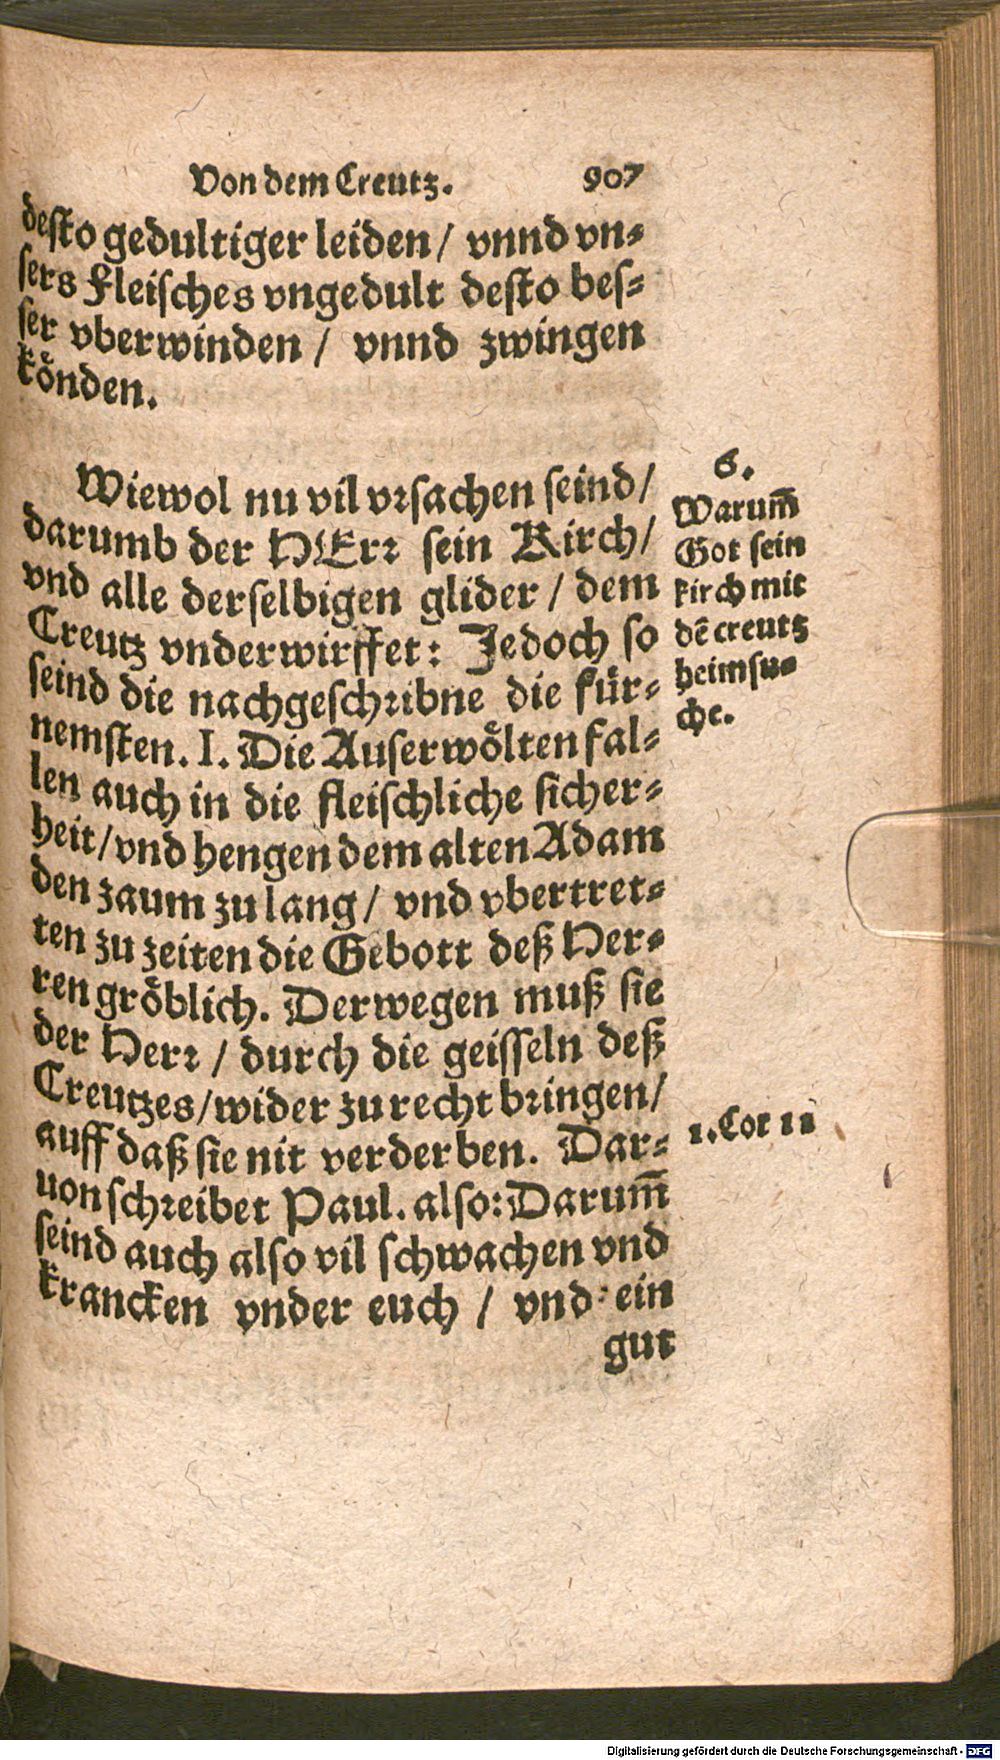 Von dem Creutz. 907
desto gedultiger leiden / vnnd vn⸗
sers Fleisches vngedult desto bes⸗
ser vberwinden / vnnd zwingen
koͤnden.
Wiewol nu vil vrsachen seind /
darumb der HErr sein Kirch /
vnd alle derselbigen glider / dem
Creutz vnderwirffet: Jedoch so
seind die nachgeschribne die fuͤr⸗
nemsten. I. Die Auserwoͤlten fal⸗
len auch in die fleischliche sicher⸗
heit / vnd hengen dem alten Adam
den zaum zu lang / vnd vbertret⸗
ten zu zeiten die Gebott deß Her⸗
ren groͤblich. Derwegen muß sie
der Herr / durch die geisseln deß
Creutzes / wider zu recht bringen /
auff daß sie nit verderben. Dar⸗
uon schreibet Paul. also: Darum̃
seind auch also vil schwachen vnd
krancken vnder euch / vnd ein
gut
6.
Warum̃
Got sein
kirch mit
dẽ creutz
heimsu⸗
che.
1. Cor 11
Digitalisierung gefördert durch die Deutsche Forschungsgemeinschaft - DFG